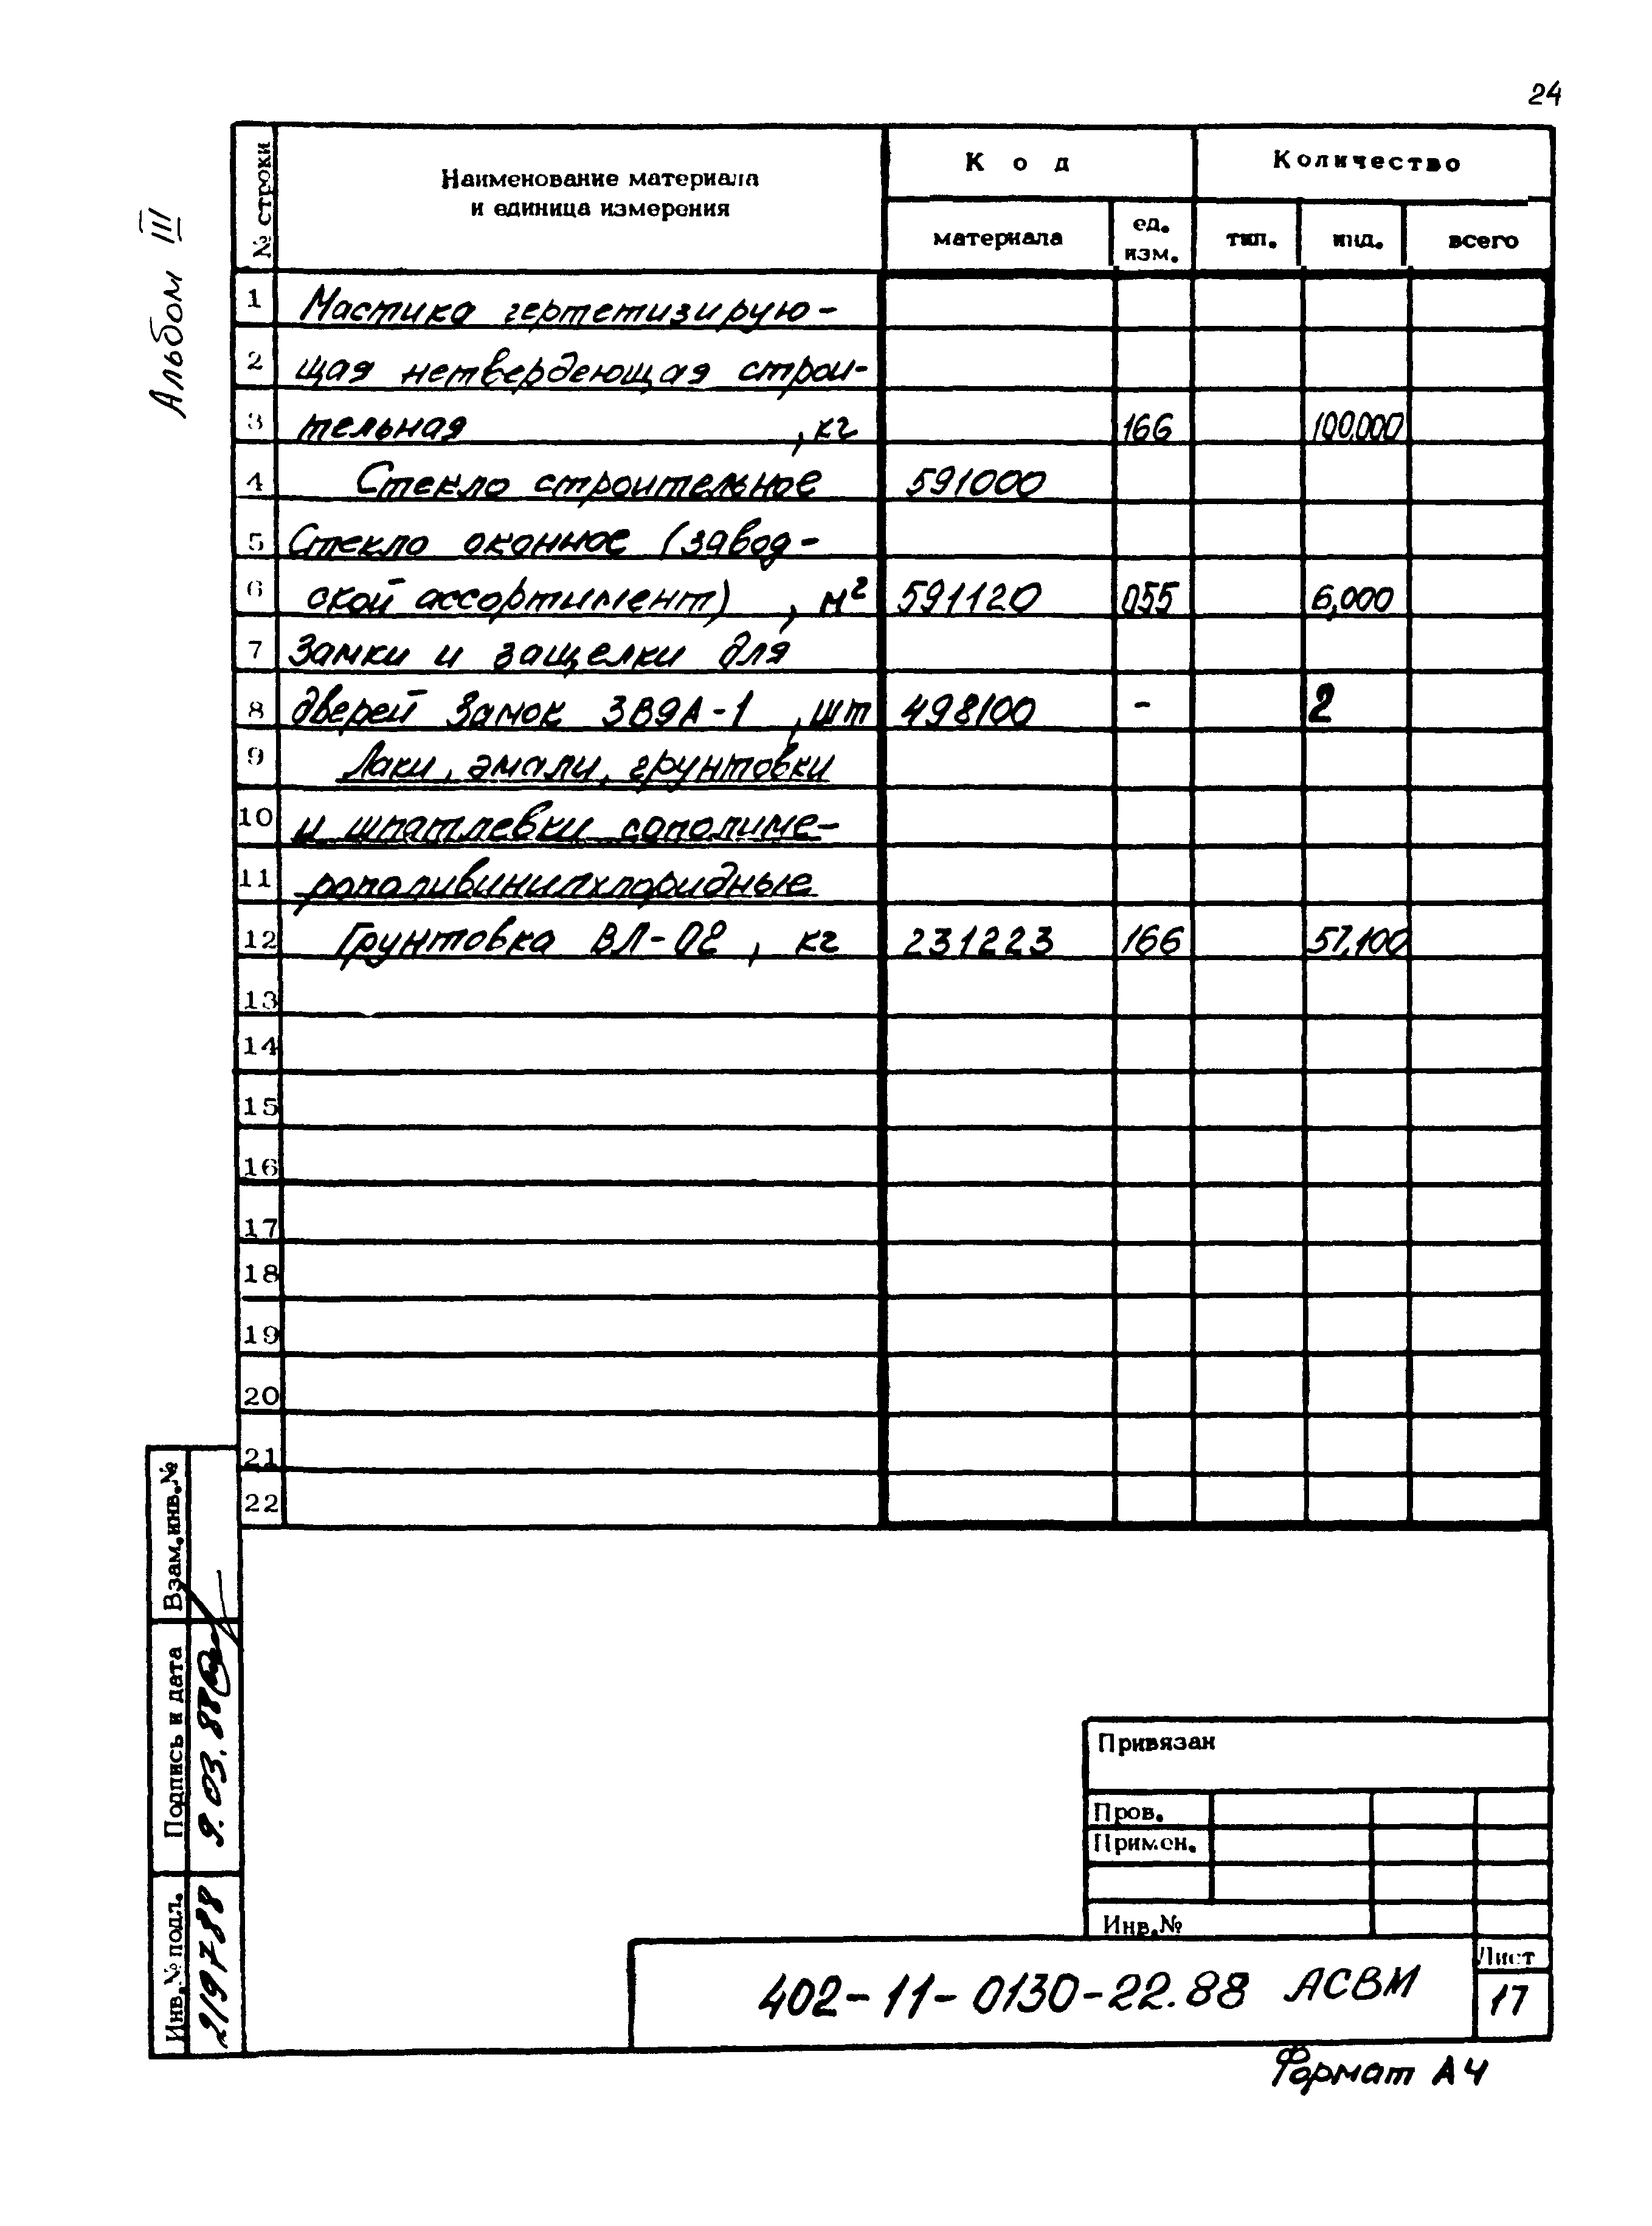 24
Альбом III
№ строки
Наименование материала
и единица измерения
К о д
Количество
материала
ед.
изм.
тип.
инд.
всего
1 Мастика гертетизирую-
2 щая нетвердеющая строи-
3 тельная , кг 166 100,000
4 Стекло строительное 591000
5 Стекло оконное (завод-
6 ской ассортимент) , м² 591120 055 6,000
7 Замки и защелки для
8 дверей Замок ЗВ9А-1 , шт 498100 - 2
9 Лаки, эмали, грунтовки
10 и шпатлевки сополиме-
11 рополивинилхлоридные
12 Грунтовка ВЛ-02 , кг 231223 166 57,100
13
14
15
16
17
18
19
20
21
22
Взам.инв.№
Подпись и дата 9.03.88
Инв.№ подл. 219788
Привязан
Пров.
Примен.
Инв.№
402-11-0130-22.88 АСВМ
Лист
17
Формат А4